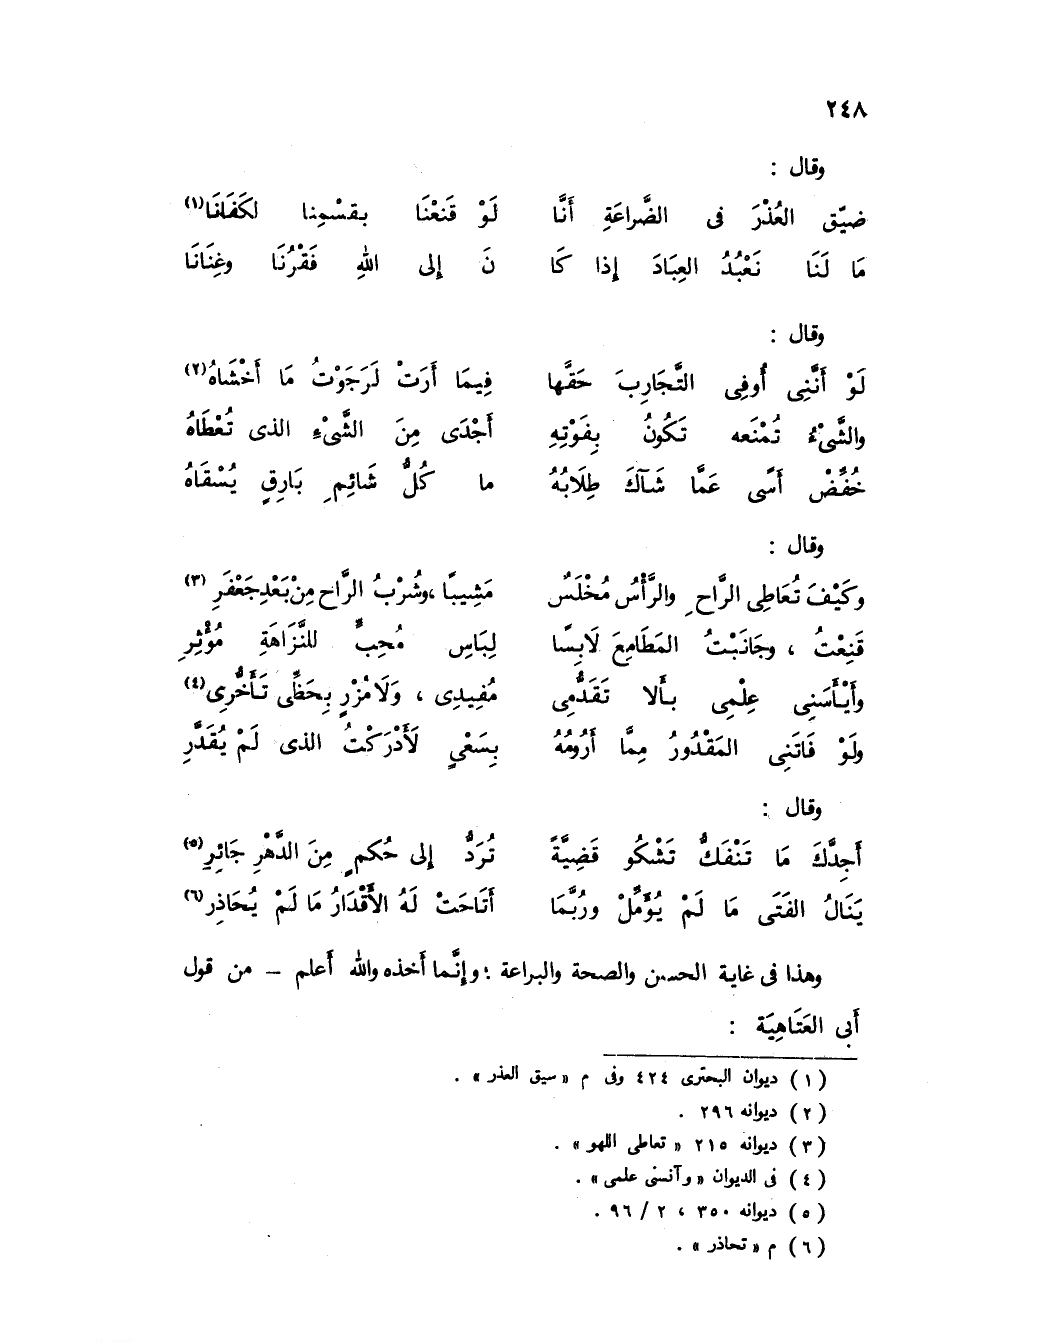 ٢٤٨
وقال :
ضيّق العُذْرَ فى الضَّراعَةِ أَنَّا لَوْ قَنَعْنَا بقسْمِنا لكَفَانَا(١)
مَا لَنَا نَعْبُدُ العِبَادَ إِذا كَا نَ إِلى اللهِ فَقْرُنَا وغِنَانَا
وقال :
لَوْ أَنَّنِى أُوفِى التَّجَارِبَ حَقَّها فِيمَا أَرَتْ لَرَجَوْتُ مَا أَخْشَاهُ(٢)
والشَّىْءُ تُمْنَعه تَكُونُ بِفَوْتِهِ أَجْدَى مِنَ الشَّىْءِ الذى تُعْطَاهُ
خُفِّضْ أَسًى عَمَّا شَآكَ طِلَابُهُ ما كُلُّ شَائِمِ بَارِقٍ يُسْقَاهُ
وقال :
وكَيْفَ تُعَاطِى الرَّاحِ والرَّأْسُ مُخْلَسٌ مَشِيبًا ،وشُرْبُ الرَّاح مِنْ بَعْدِ جَعْفَرِ (٣)
قَنِعْتُ ، وجَانَبْتُ المَطَامِعَ لَابِسًا لِبَاسِ مُحِبٍّ للنَّزَاهَةِ مُؤْثِرِ
وأَيْأَسَنِى عِلْمِى بـألا تَقَدُّمِى مُفِيدِى ، وَلَا مُزْرٍ بِحَظِّى تَـأَخُّرِى(٤)
ولَوْ فَاتَنِى المَقْدُورُ مِمَّا أَرُومُهُ بِسَعْىٍ لَأَدْرَكْتُ الذى لَمْ يُقَدَّرِ
وقال :
أَجِدَّكَ مَا تَنْفَكُّ تَشْكُو قَضِيَّةً تُرَدُّ إِلى حُكمٍ مِنَ الدَّهْرِ جَائِرِ(٥)
يَنَالُ الفَتَى مَا لَمْ يُؤَمِّلْ ورُبَّمَا أَتَاحَتْ لَهُ الأَقْدَارُ مَا لَمْ يُحَاذِرِ(٦)
وهذا فى غاية الحسن والصحة والبراعة ؛ وإِنَّما أخذه والله أعلم – من قول
أَبى العَتَاهِيَة :
(١) ديوان البحترى ٤٢٤ وفى م « سيق العذر » .
(٢) ديوانه ٢٩٦ .
(٣) ديوانه ٢١٥ « تعاطى اللهو » .
(٤) فى الديوان « وآنسنى علمى » .
(٥) ديوانه ٣٥٠ ، ٢ / ٩٦ .
(٦) م « تحاذر » .